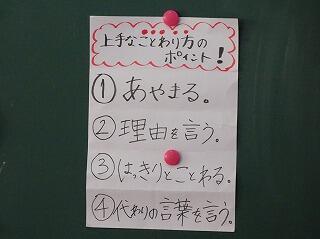 上手なことわり方の
ポイント!
①あやまる。
②理由を言う。
③はっきりとことわる。
④代わりの言葉を言う。